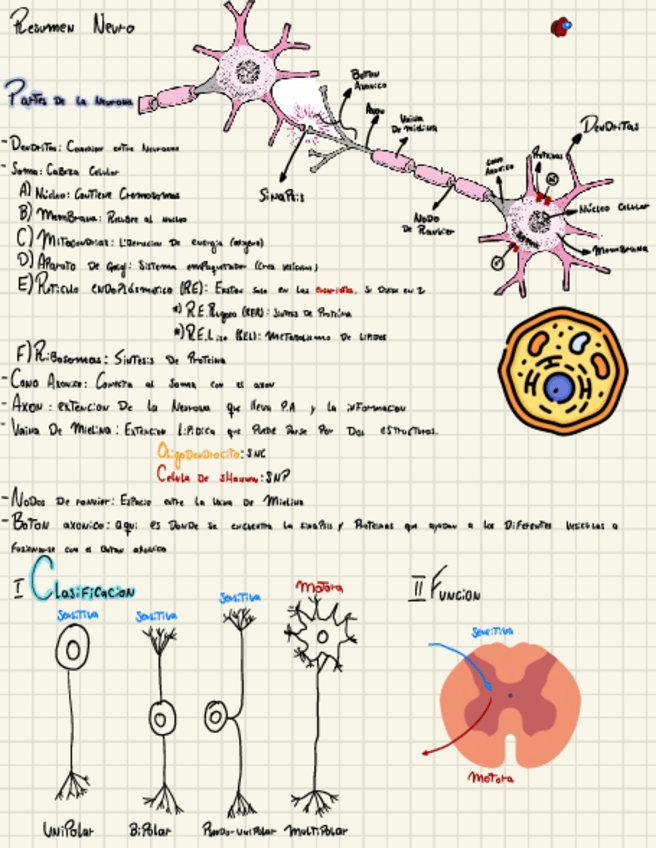 Resumen Neuro
Partes De la Neurona
Boton
Axonico
Axon
Vaina
De mielina
Sinapsis
Nodo
De Ranvier
Cono
Axonico
Proteinas
Dendritas
Núcleo Celular
Membrana
- Dendritas: Conexion entre Neuronas
- Soma: Cabeza Celular
A) Núcleo: Contiene Cromosomas
B) Membrana: Recubre al nucleo
C) Mitocondrias: Liberacion De energia (oxigeno)
D) Aparato De Golgi: Sistema empaquetador (crea vesiculas)
E) Reticulo endoplásmatico (RE): Existen solo en las Si Divide en 2
*) R.E.Rugoso (RER): Sintesis de Proteína
*) R.E.Liso (REL): Metabolismo De Lipidos
F) Ribosomas: Sintesis De Proteina
- Cono Axonico: Conecta al Soma con el axon
- Axon: extencion De la Neurona que lleva P.A y la informacion
- Vaina De Mielina: Extencion Lipidica que Puede Darse Por Dos estructuras.
Oligodendrocito: SNC
Celula De shwann: SNP
- Nodos De ranvier: Espacio entre la Vaina De Mielina
- Boton axonico: aqui es Donde se encuentra la sinapsis y Proteinas que ayudan a las Diferentes Vesiculas a
fusionarse con el Boton axonico
I Clasificacion
Sensitiva
Sensitiva
Sensitiva
Motora
UniPolar
BiPolar
Pseudo-uniPolar
MultiPolar
II Funcion
Sensitiva
Motora